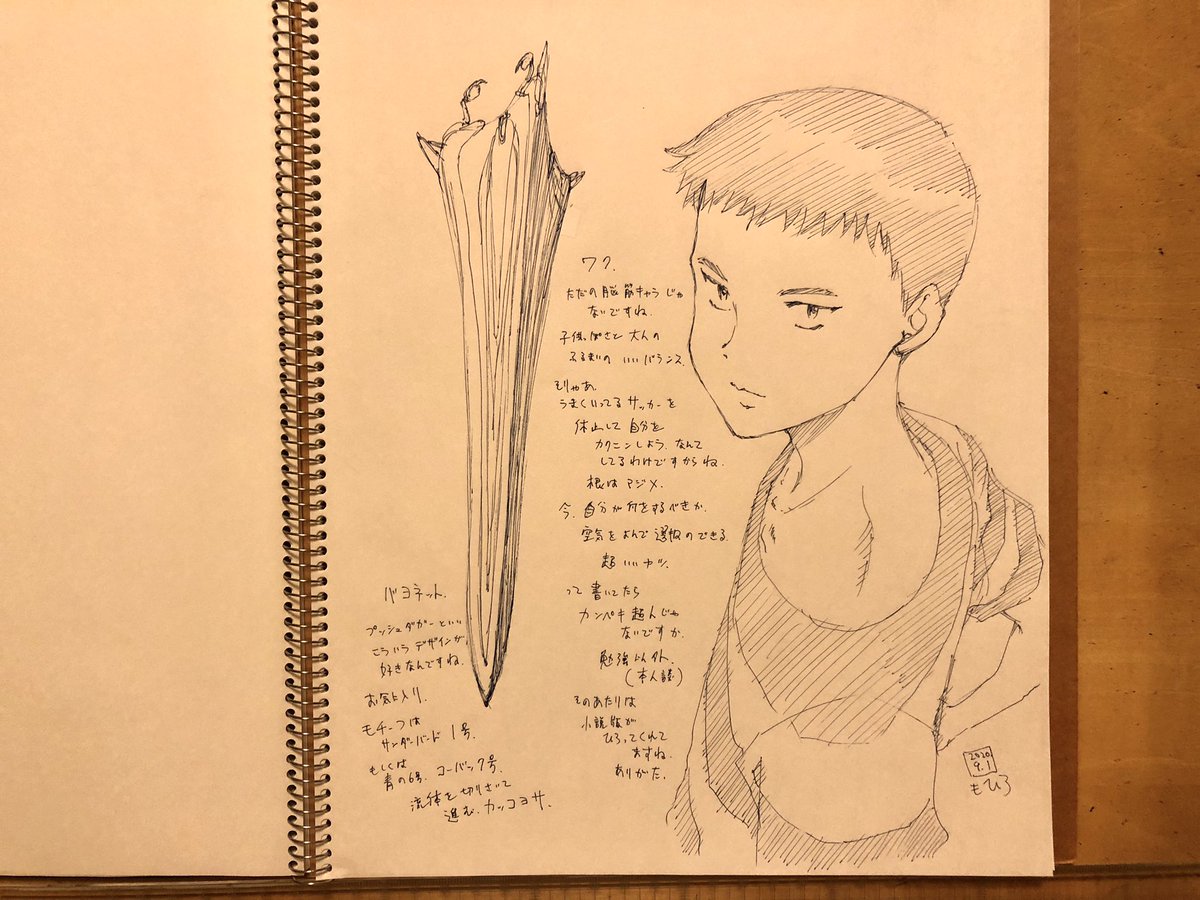 ワク.
ただの脳筋キャラじゃ
ないですね.
子供っぽさと大人の
ふるまいの いいバランス.
そりゃあ.
うまくいってるサッカーを
休止して 自分を
カクニンしよう. なんて
してるわけですからね.
根はマジメ.
今. 自分が何をするべきか.
空気をよんで 選択のできる
超いいヤツ.
って書いてたら
カンペキ超人じゃ
ないですか.
勉強以外.
(本人談)
そのあたりは
小説版が
ひろってくれて
ますね.
ありがた.
バヨネット.
プッシュダガーといい
こういうデザインが,
好きなんですね.
お気に入り.
モチーフは
サンダーバード 1号.
もしくは
青の6号. コーバック号.
流体を切りさいて
進む. カッコヨサ.
2020
9.1
もひろ